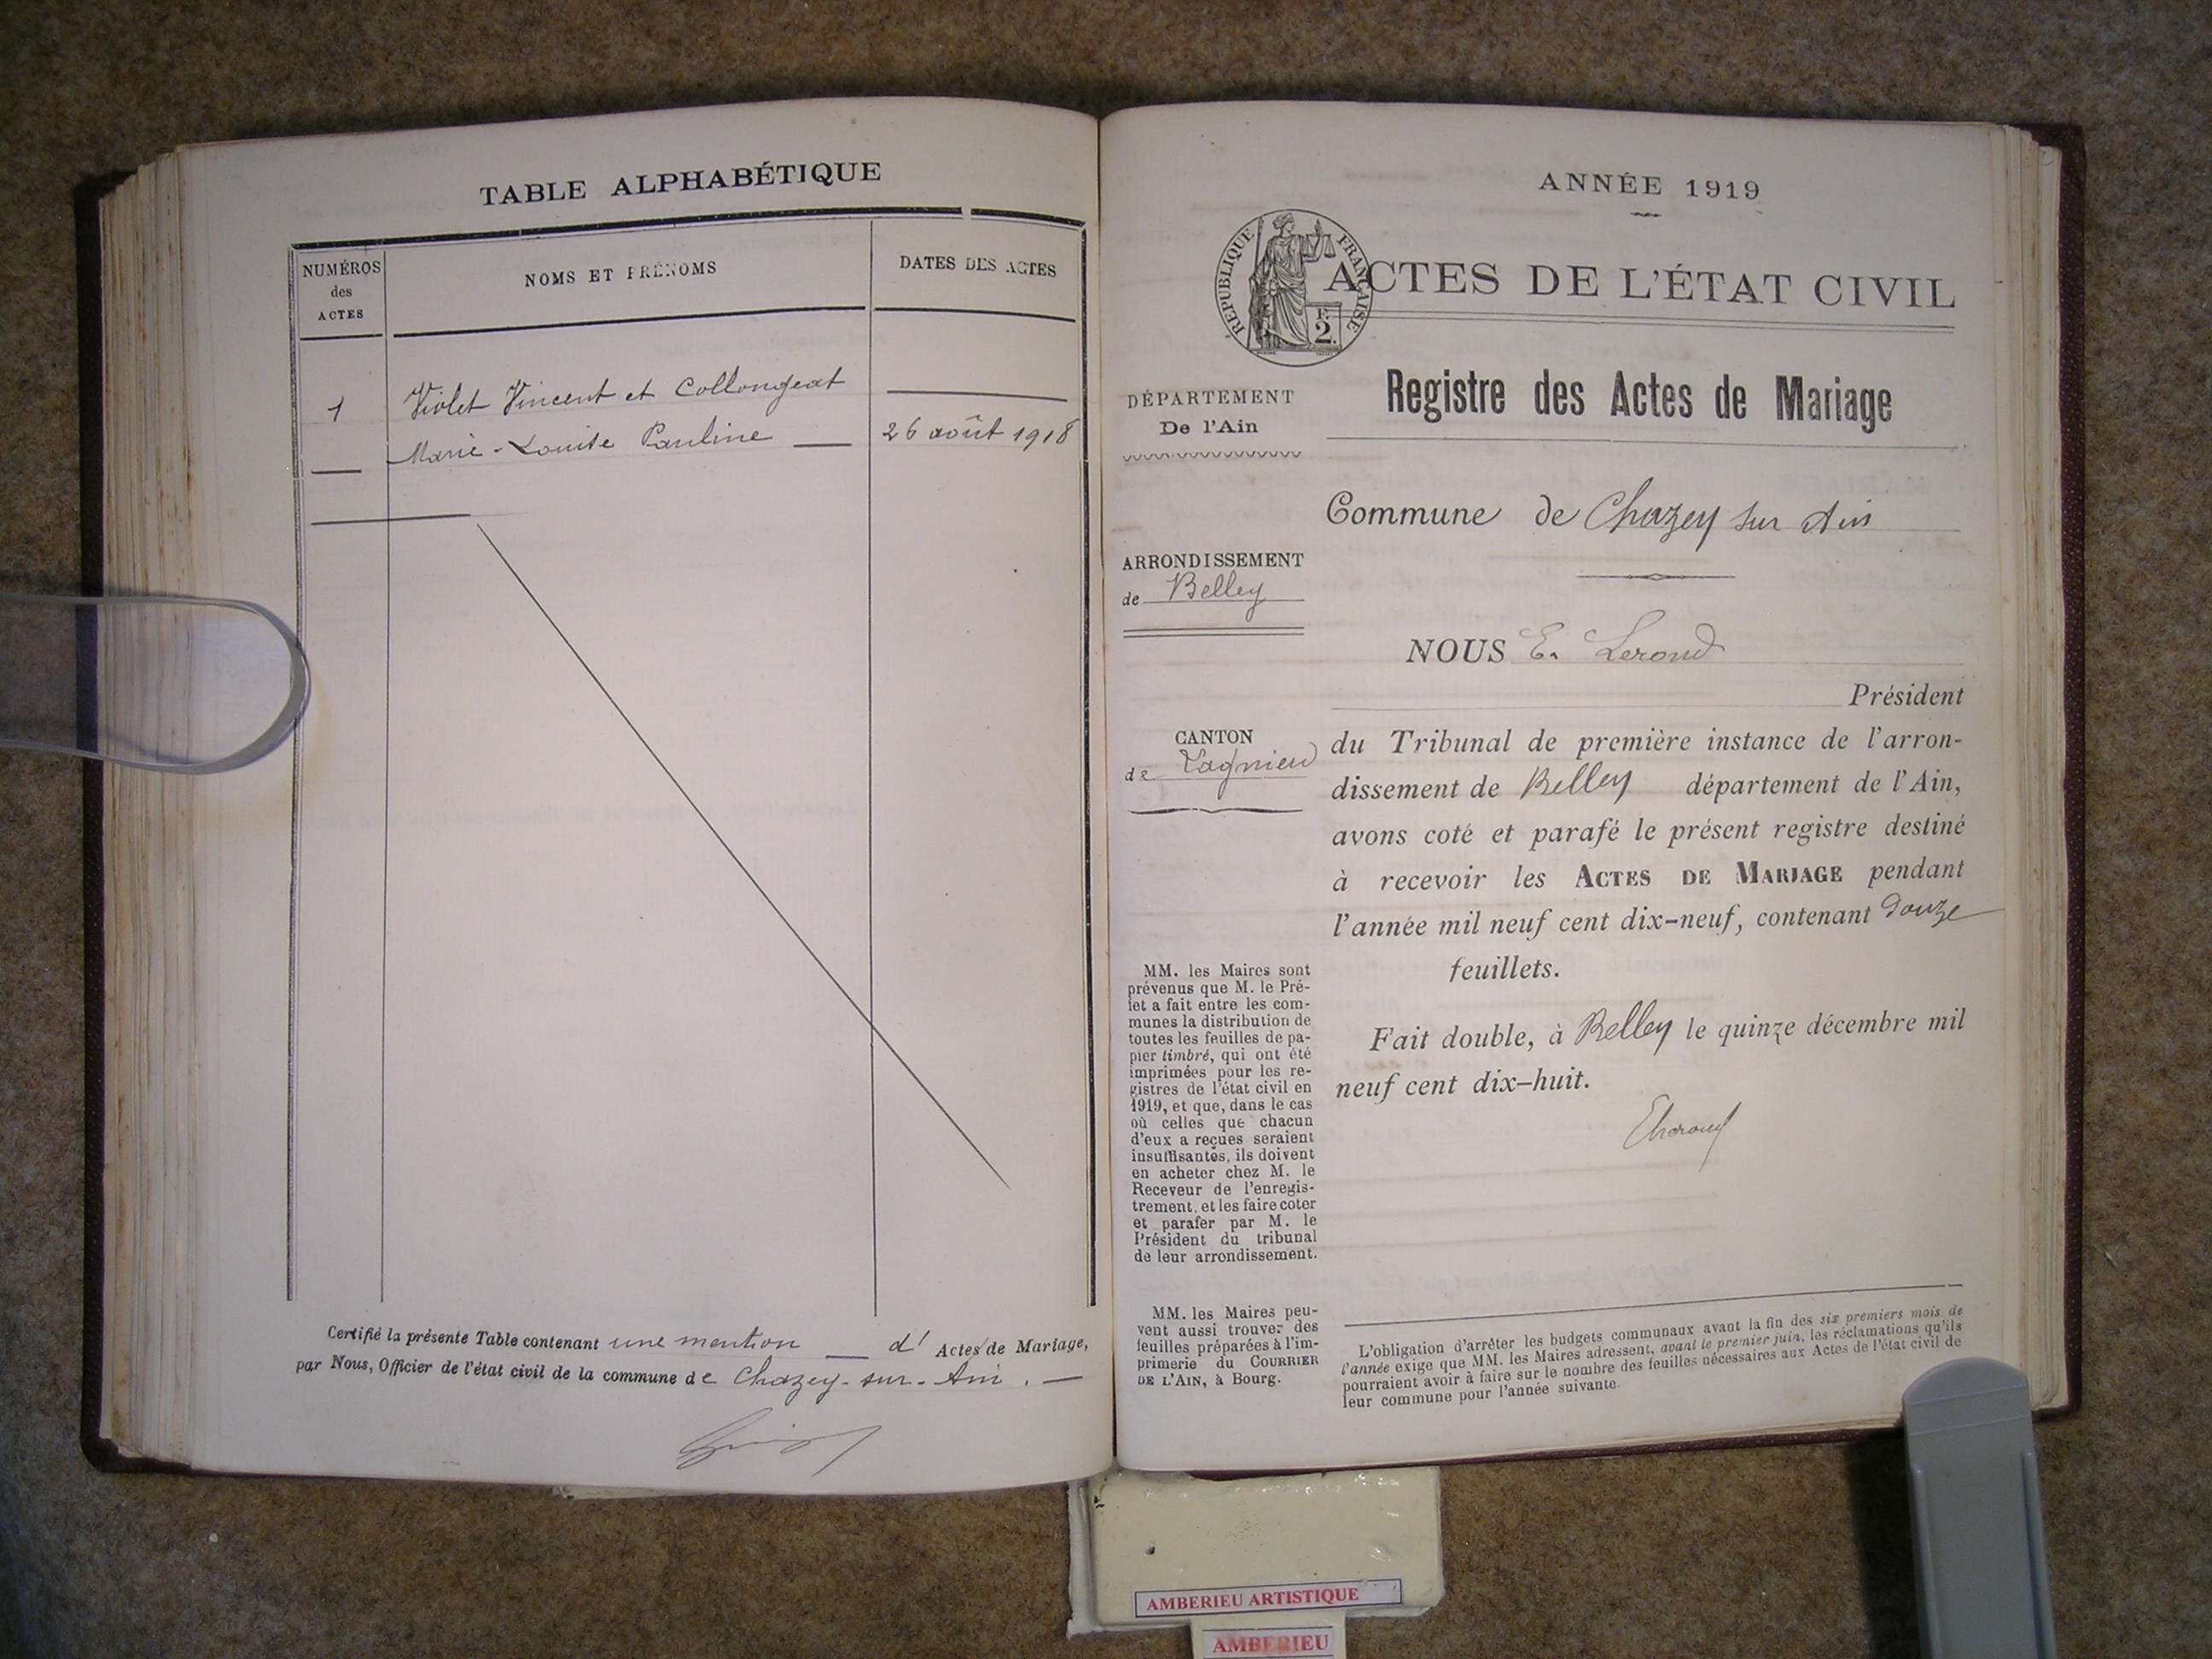 TABLE ALPHABÉTIQUE
NUMÉROS
des
ACTES
NOMS ET PRÉNOMS
DATES DES ACTES
1
Violet Vincent et Collongeat
Marie-Louise Pauline
26 août 1918
Certifié la présente Table contenant une mention d' Actes de Mariage,
par Nous, Officier de l'état civil de la commune de Chazey-sur-Ain.
ANNÉE 1919
RÉPUBLIQUE FRANÇAISE
F.
2.
ACTES DE L'ÉTAT CIVIL
DÉPARTEMENT
De l'Ain
Registre des Actes de Mariage
Commune de Chazey sur Ain
ARRONDISSEMENT
de Belley
NOUS E. Lerond
Président
CANTON
de Lagnieu
du Tribunal de première instance de l'arron-
dissement de Belley département de l'Ain,
avons coté et parafé le présent registre destiné
à recevoir les ACTES DE MARIAGE pendant
l'année mil neuf cent dix-neuf, contenant douze
feuillets.
Fait double, à Belley le quinze décembre mil
neuf cent dix-huit.
MM. les Maires sont
prévenus que M. le Pré-
fet a fait entre les com-
munes la distribution de
toutes les feuilles de pa-
pier timbré, qui ont été
imprimées pour les re-
gistres de l'état civil en
1919, et que, dans le cas
où celles que chacun
d'eux a reçues seraient
insuffisantes, ils doivent
en acheter chez M. le
Receveur de l'enregis-
trement, et les faire coter
et parafer par M. le
Président du tribunal
de leur arrondissement.
MM. les Maires peu-
vent aussi trouver des
feuilles préparées à l'im-
primerie du COURRIER
DE L'AIN, à Bourg.
L'obligation d'arrêter les budgets communaux avant la fin des six premiers mois de
l'année exige que MM. les Maires adressent, avant le premier juin, les réclamations qu'ils
pourraient avoir à faire sur le nombre des feuilles nécessaires aux Actes de l'état civil de
leur commune pour l'année suivante.
AMBERIEU ARTISTIQUE
AMBERIEU